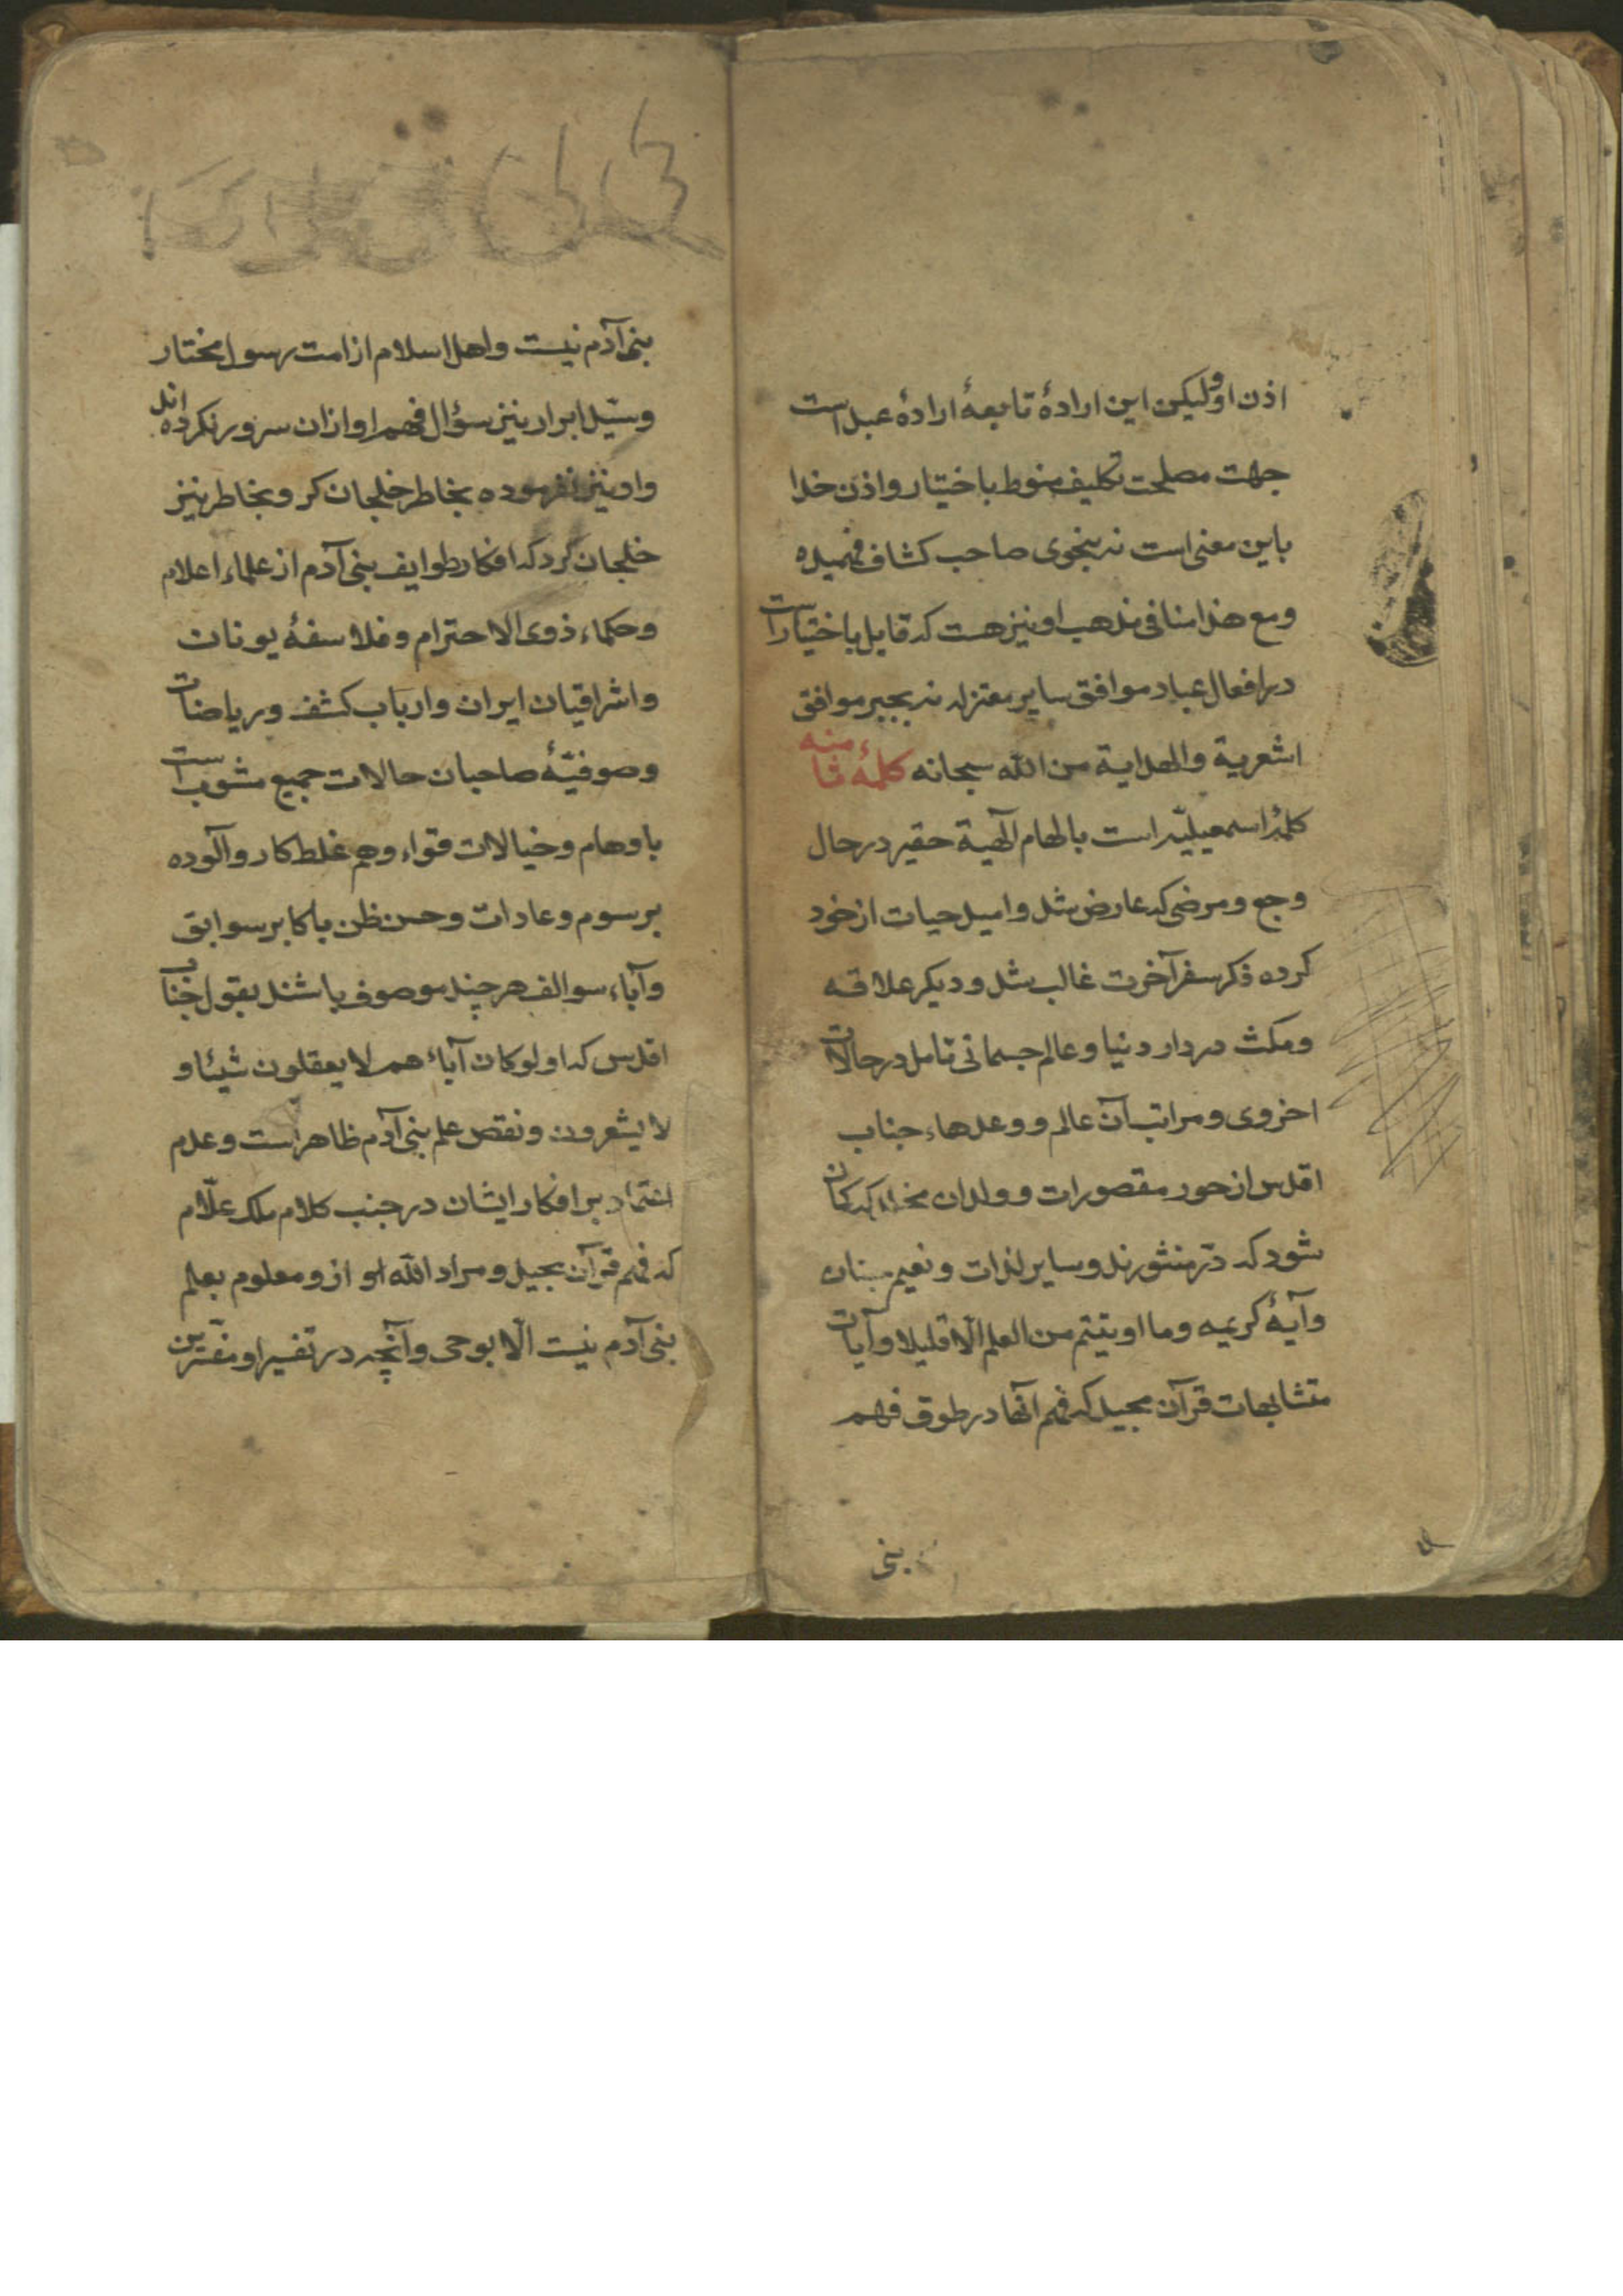 اذن او ولیکن این ارادهٔ تابعهٔ ارادهٔ عبد است
جهت مصلحت تکلیف منوط باختیار و اذن خدا
باین معنی است نه بنحوی صاحب کشاف فهمیده
ومع هذا منافی مذهب او نیز هست که قایل باختیار است
در افعال عباد موافق سایر معتزله نه بجبر موافق
اشعریة والهدایة من الله سبحانه کلمهٔ ثامنه
کلمهٔ اسمعیلیّه است بالهام آلهیة حقیر در حال
وجع و مرضی که عارض شد و امید حیات از خود
کرده فکر سفر آخرت غالب شد و دیکر علاقه
ومکث در دار دنیا و عالم جسمانی تامل در حالات
اخروی و مراتب آن عالم و وعدهاء جناب
اقدس از حور مقصورات و ولدان مخلد که کمان
شود که درّ منثورند و سایر لذات و نعیم جنان
وآیهٔ کریمه وما اوتیتم من العلم الّا قلیلا وآیات
متشابهات قرآن مجید که فهم آنها در طوق فهم
بنی
بنی آدم نیست واهل اسلام از امت رسول مختار
وسیّد ابرار نیز سؤال فهم او از ان سرور نکرده اند
واو نیز نفرموده بخاطر خلجان کر وبخاطر نیز
خلجان کرد که افکار طوایف بنی آدم از علماء اعلام
وحکماء ذوی الاحترام وفلاسفهٔ یونان
واشراقیان ایران وارباب کشف وریاضات
وصوفیّهٔ صاحبان حالات جمیع مشوب است
باوهام وخیالات قواء وهم غلط کار وآلوده
برسوم وعادات وحسن ظن باکابر سوابق
وآباء سوالف هر چند موصوف باشند بقول جناب
اقدس که اولو کان آباءهم لا یعقلون شیئا و
لا یشعرون ونقص علم بنی آدم ظاهر است وعدم
اعتماد بر افکار ایشان در جنب کلام ملک علّام
که فهم قرآن مجید ومراد الله او ازو معلوم بعلم
بنی آدم نیست الّا بوحی وآنچه در تفسیر او مفسّرین